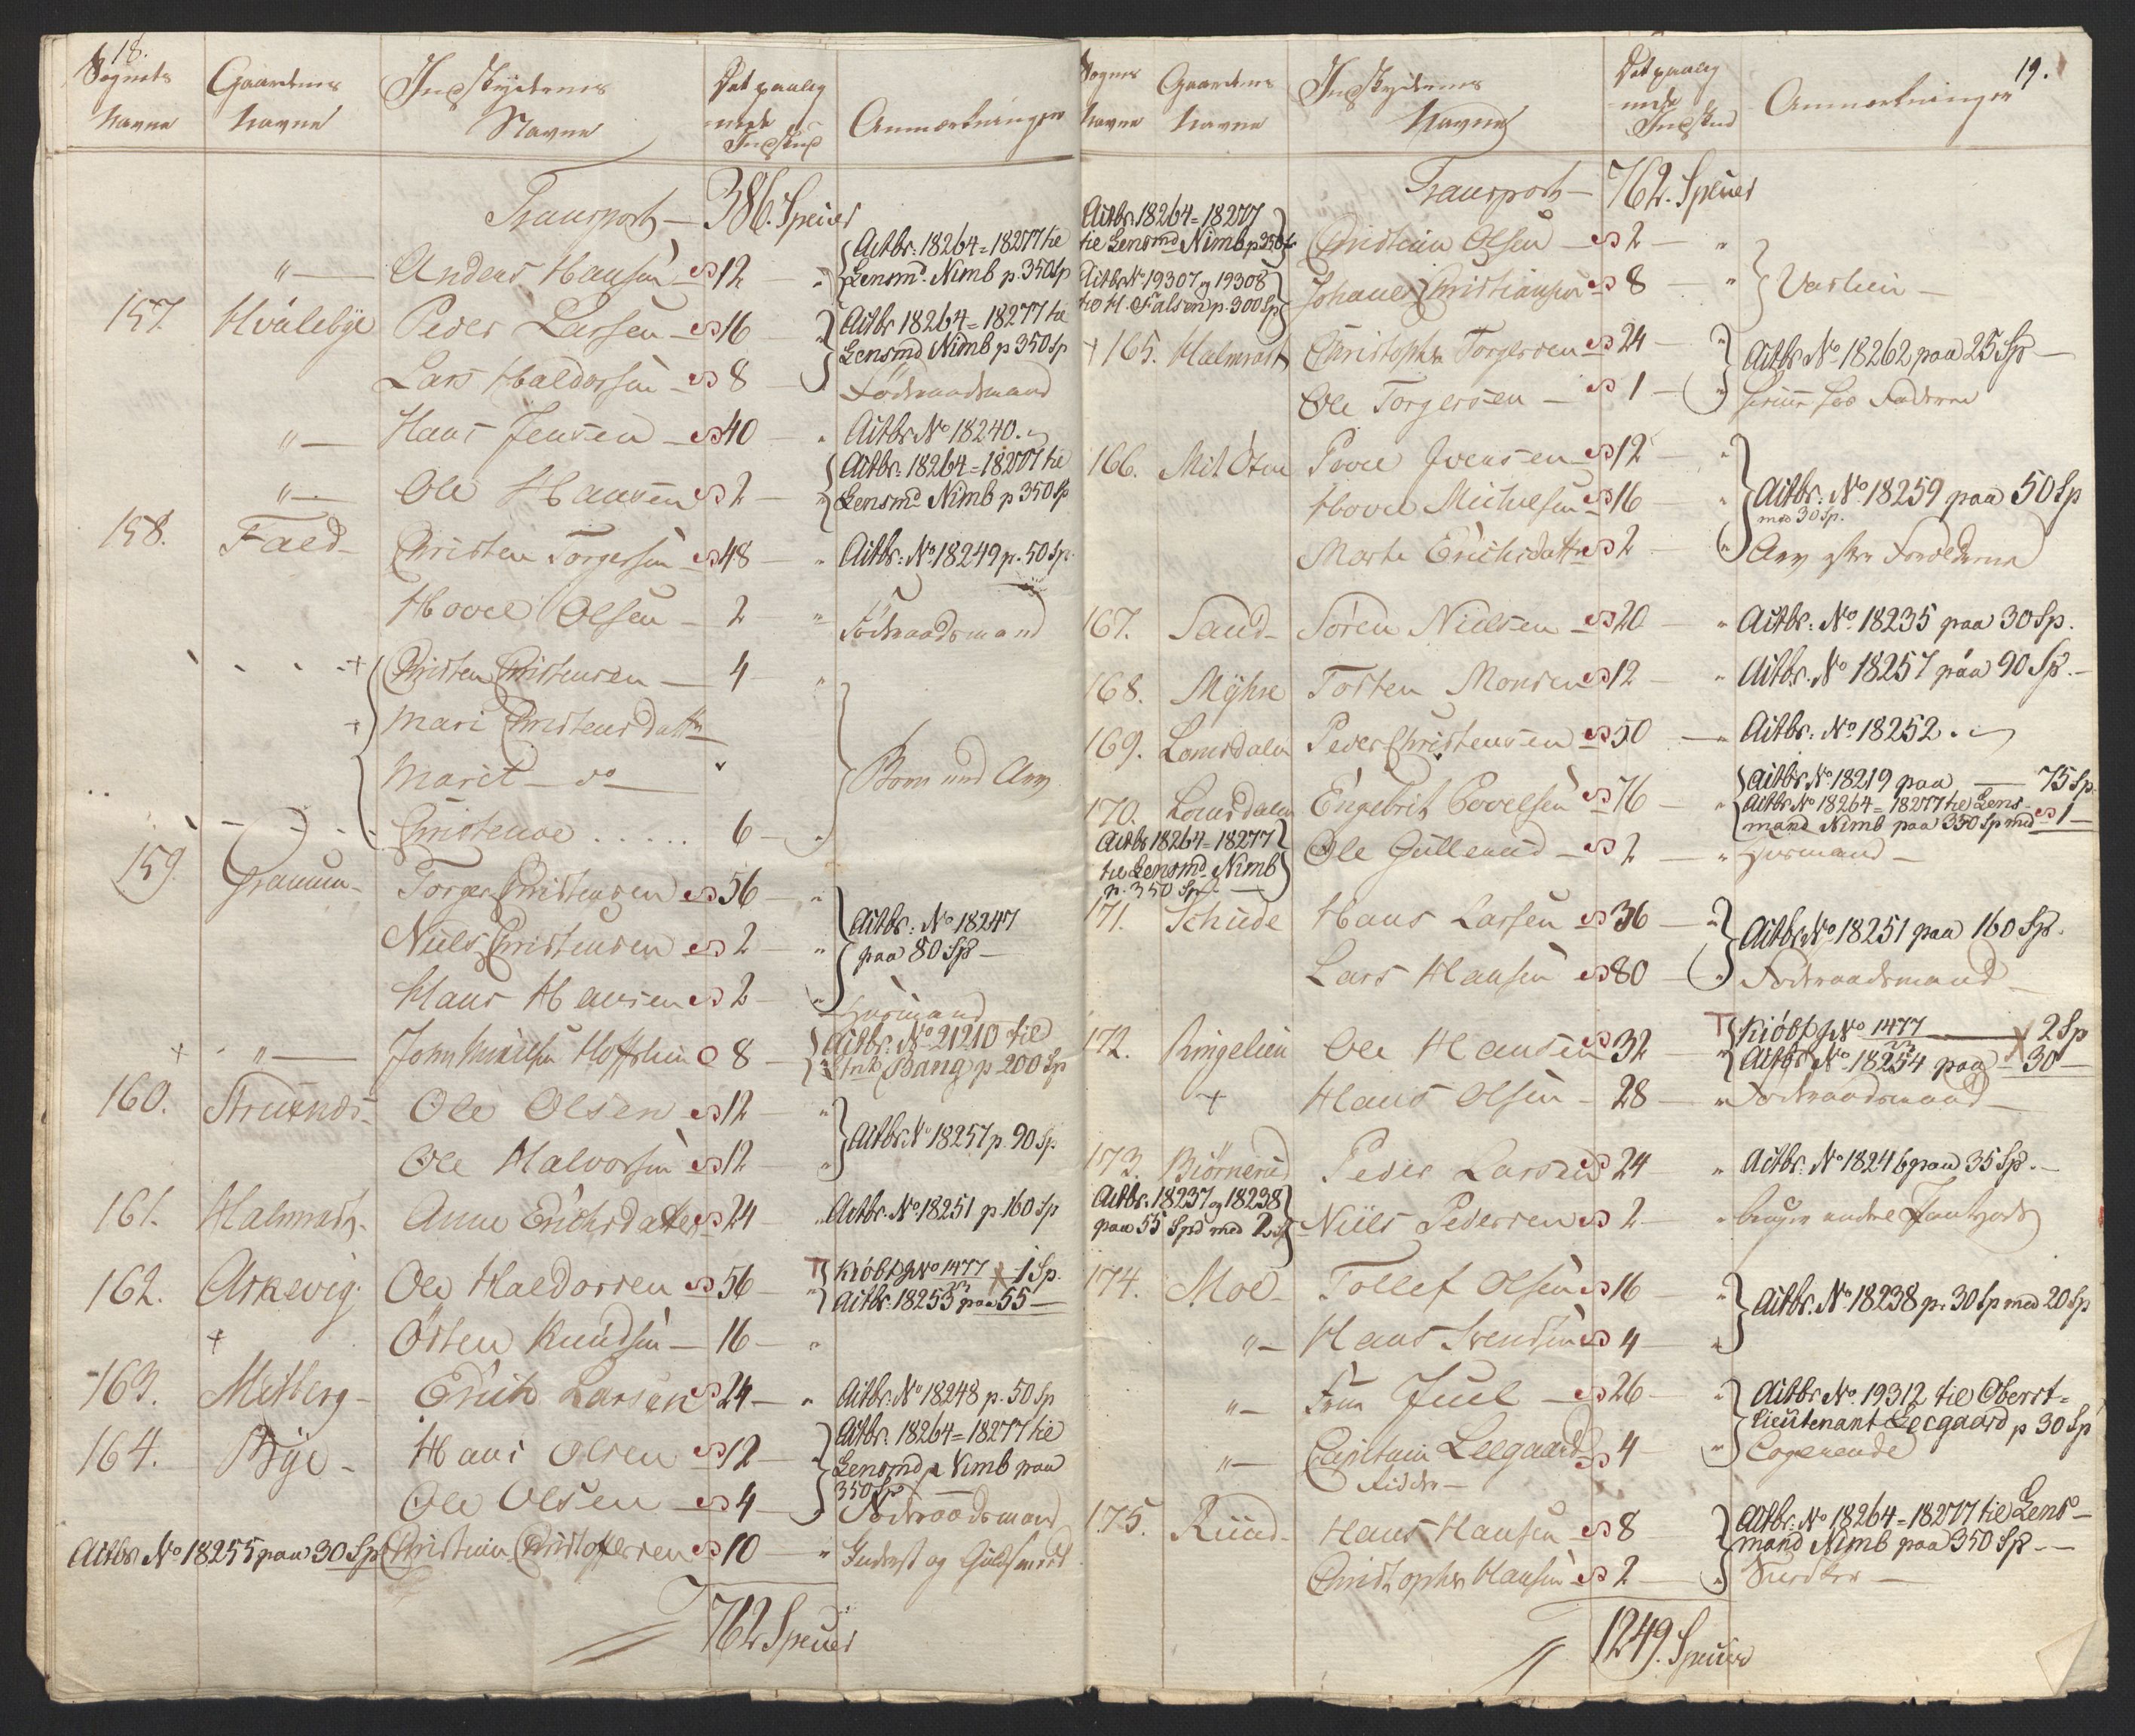 18.
Sognets Navne
Gaardenes Navne
Indskydernes Navne
Det paalagde Indskud
Anmærkninger
Transport — 386. Specier
" — Anders Hansen — 12 — " Actbr. 18264 = 18277 til Lensmd. Nimb p. 350 Sp
157. Hvalebye Peder Larsen — 16 — " Actbr 18264 = 18277 til Lensmd Nimb p 350 Sp
Lars Haldorsen — 8 — Föderaadsmand
" — Hans Jensen — 40 — " Actbr No 18240.
" — Ole Hansen 2 — " Actbr. 18264 = 18277 til Lensmd Nimb p 350 Sp
158. Faed — Christen Torgersen — 48 — " Actbr: No 18249 p. 50 Sp.
Hovel Olsen — 2 — " Föderaadsmand
+ Christen Christensen — 4 — "
+ Mari Christensdatter
Marit — do — " Börn med Arv
Christence . . . . . 6 — "
159. Gramm — Torger Christensen 56 — " Actbr: No 18247 paa 80 Sp —
Niels Christensen 2 — "
Hans Hansen 2 — " Huusmand
+ " — John Hofslien 8 — Actbr: No 21210 til Bang p 200 Sp
160. Struxnes — Ole Olsen — 12 — " Actbr No 18257 p. 90 Sp.
Ole Halvorsen — 12 — "
161. Halmrast. Anne Erichsdatter 24 — " Actbr. No 18251 p 160 Sp
162. Askevig. Ole Haldorsen 56 — " Kiöbt No 1477 — 1 Sp.
Actbr. 18253 paa 55 —
+ Östen Knudsen — 16 — "
163. Metberg — Erich Larsen 24 — " Actbr. No 18248 p. 50 Sp
164. Bye — Hans Olsen 12 — Actbr. 18264 = 18277 til Lensmd Nimb paa 350 Sp
Ole Olsen — 4 — " Föderaadsmand
Actbr No 18255 paa 30 Sp Christian Christoffersen 10 — " Inderst og Guldsmed
762 Specier
19.
Sognes Navne
Gaardens Navne
Indskydernes Navne
Det paalagde Indskud
Anmærkninger
Transport — 762. Specier
Actbr. 18264 = 18277 til Lensmd Nimb p 350 Sp Christian Olsen — 2 — "
Actbr No 19307 og 19308 til H. Falsen p. 300 Sp Johanes Christiansen 8 — "
+ 165. Halmrast Christopher Torgersen 24 — " Actbr No 18262 paa 25 Sp —
Ole Torgersen — 1 — " hos Faderen
166. Mit Poul Ivensen 12 — "
Hovel Michelsen 16 — " Actbr: No 18259 paa 50 Sp
med 30 Sp.
Marte Erichsdatter 2 — " Arv Forældrene
167. Sand — Sören Nielsen 20 — " Actbr: No 18235 paa 30 Sp.
168. Myhre Tosten Monsen 12 — " Actbr. No 18257 paa 90 Sp. —
169. Lomsdalen Peder Christensen 50 — " Actbr: No 18252.
170. Lomsdalen Engebrit Povelsen 76 — " Actbr No 18219 paa — 75 Sp.
Actbr No 18264 = 18277 til Lensmand Nimb paa 350 Sp med 1 —
Actbr 18264 = 18277 til Lensmd Nimb p. 350 Sp — Ole Gullerud — 2 — " Huusmand —
171. Schude Hans Larsen 36 — " Actbr No 18251 paa 160 Sp.
Lars Hansen 80 — " Föderaadsmand
172. Ringelien Ole Hansen 32 — " Kiöbt No 1477 — 2 Sp
Actbr No 18254 paa — 30 —
+ Hans Olsen — 28 — " Föderaadsmand
173. Biörnerud Peder Larsen 24 — " Actbr: No 18246 paa 35 Sp. —
Actbr: 18237 og 18238 paa 55 Spd med 2 Sp Niels Pedersen 2 — " bruger andre
174. Moe — Tollef Olsen 16 — " Actbr. No 18238 p. 30 Sp med 20 Sp
" — Hans Svendsen 4 — "
" — Frue Juel — 26 — " Actbr No. 19312 til Oberst = lieutenant Leegaard p 30 Sp
" — Capitain Leegaard 4 — " Logerende
175. Ruud — Hans Hansen 8 — Actbr: No 18264 = 18277 til Lens — mand Nimb paa 350 Sp —
Christopher Hansen 2 — "
1249. Specier